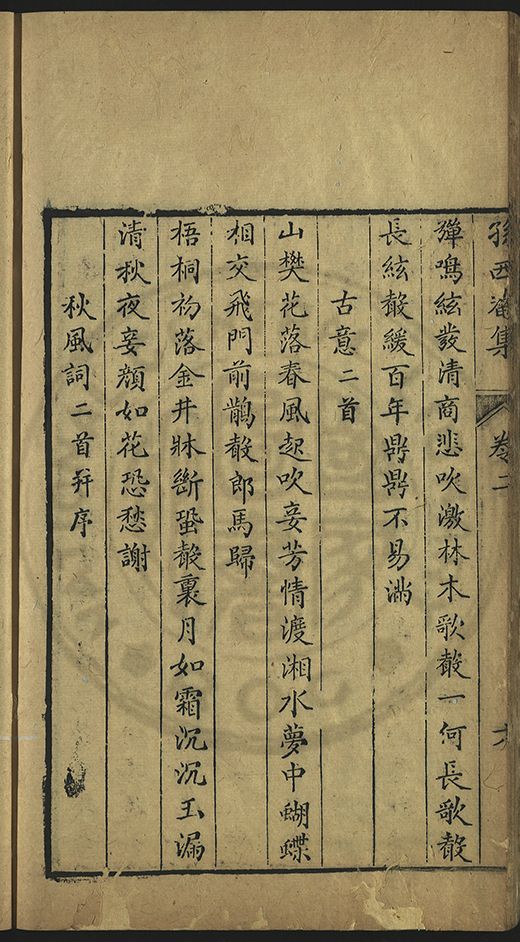 孫西菴集 卷二 六
殫鳴絃發清商悲吹激林木歌聲一何長歌聲
長絃聲緩百年鼎鼎不易滿
古意二首
山樊花落春風起吹妾芳情渡湘水夢中蝴蝶
相交飛門前鵲聲郎馬歸
梧桐初落金井牀斷蛩聲裏月如霜沉沉玉漏
清秋夜妾顏如花恐愁謝
秋風詞二首幷序